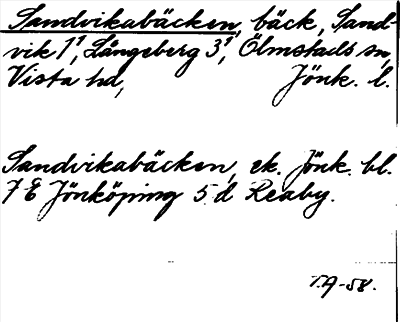 Sandvikabäcken, bäck, Sand-
vik 1¹, Långeberg 3¹, Ölmstads sn,
Vista hd, Jönk. l.
Sandvikabäcken, ek. Jönk. bl.
7 E Jönköping 5 d Reaby.
T.A-58.